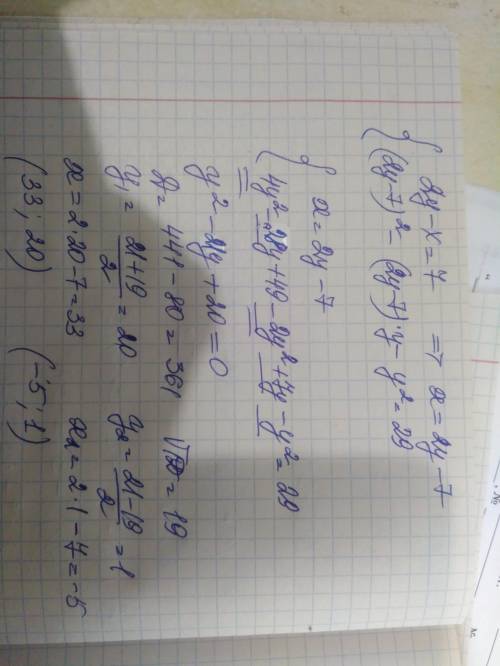 { 2y - x = 7 ⇒ x = 2y - 7
(2y-7)² - (2y-7)·y - y² = 29
{ x = 2y - 7
4y² - 28y + 49 - 2y² + 7y - y² = 29
y² - 21y + 20 = 0
D = 441 - 80 = 361 √D = 19
y₁ = (21+19)/2 = 20 y₂ = (21-19)/2 = 1
x = 2·20 - 7 = 33 x₂ = 2·1 - 7 = -5
(33; 20) (-5; 1)